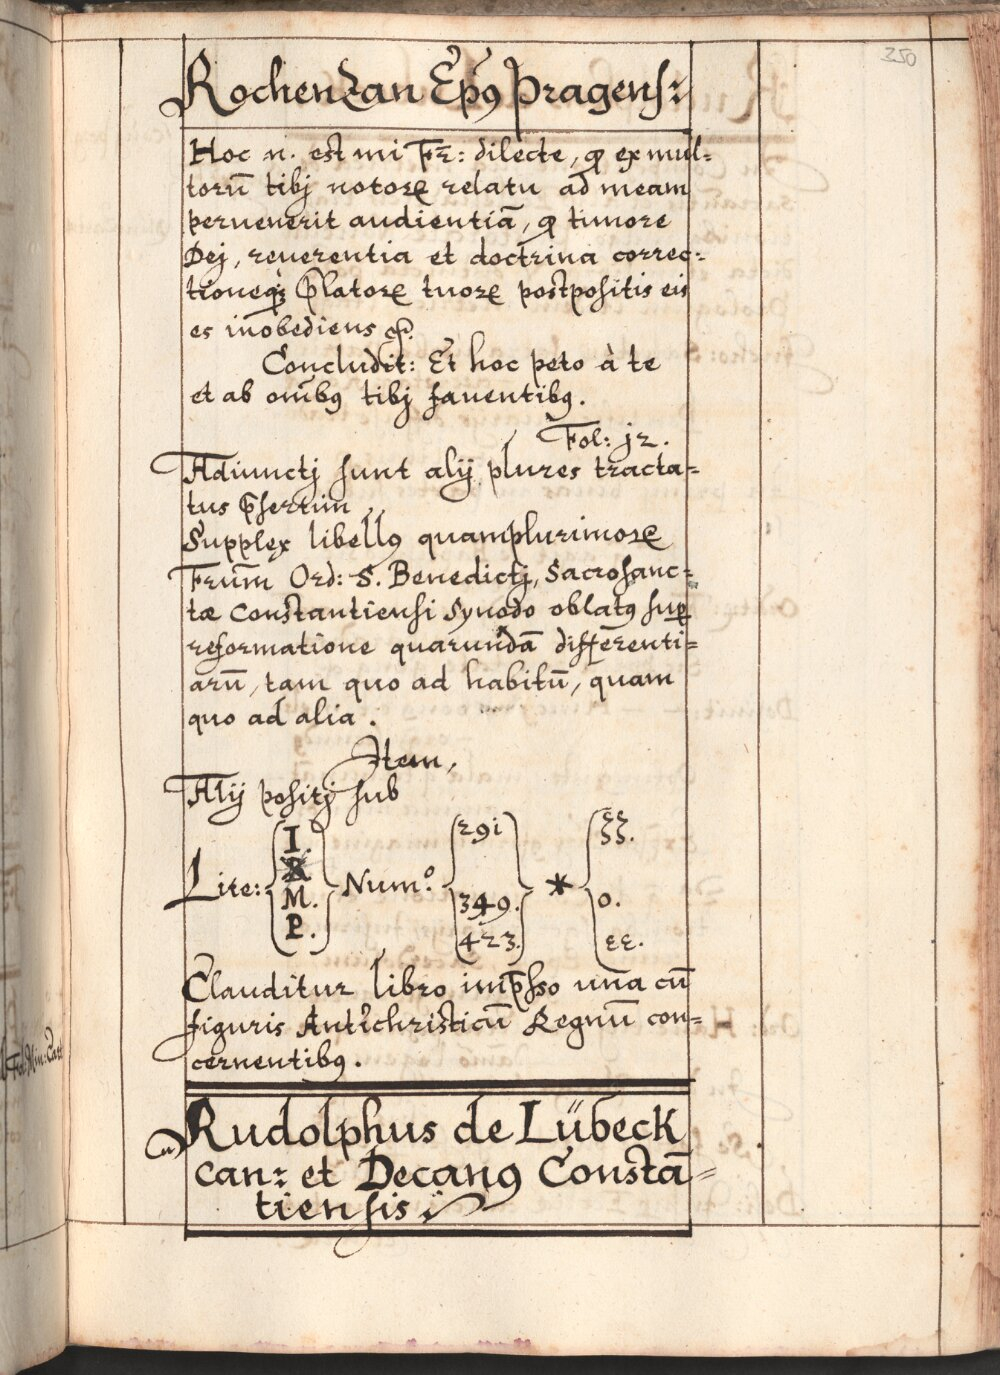 250
Rochenzan Ep̄ꝯ Pragens:
Hoc n. est mi Fr̄: dilecte, qꝫ ex mul-
torū tibj notorꝝ relatu ad meam
peruenerit audientiā, qꝫ timore
Dej, reuerentia et doctrina correc-
tioneqꝫ P̄latorꝝ tuorꝝ postpositis eis
es inobediens
Concludit: Et hoc peto à te
et ab om̄ibꝯ tibj fauentibꝯ.
Fol: jz.
Adiunctj sunt alij plures tracta-
tus p̄sertim
Supplex libellꝯ quamplurimorꝝ
Frūm Ord: S. Benedictj, Sacrosanc-
tæ Constantiensi Synodo oblatꝯ suꝑ
reformatione quarundā differenti-
arū, tam quo ad habitū, quam
quo ad alia.
Item,
Alij positj sub
Lite: { I. M. P. } Num.o { 291 349. 423. } * { ξξ. o. εε. }
Clauditur libro imp̄sso una cū
figuris Antichristicū Regnū con-
cernentibꝯ.
Rudolphus de Lübeck
can: et Decanꝯ Constā-
tiensis